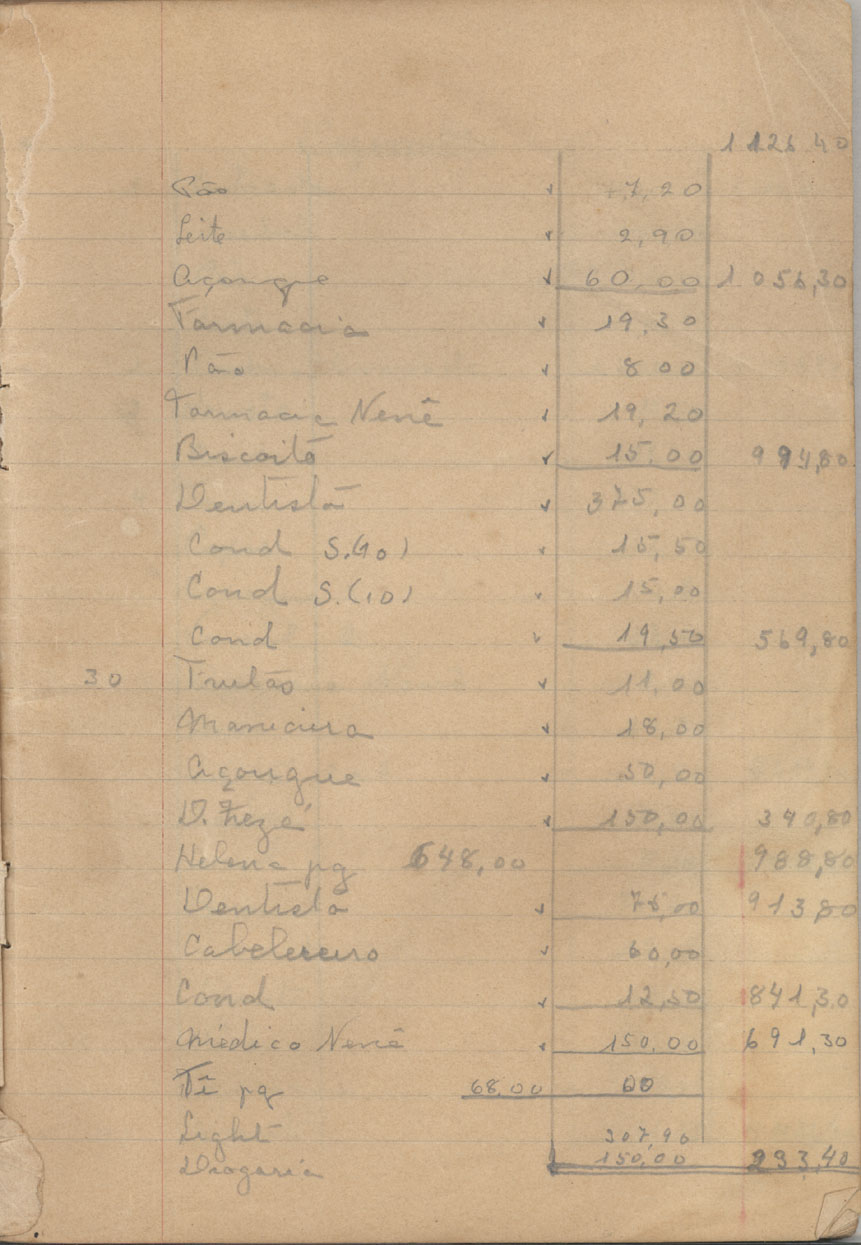 1126 40
Pão 7,20
Leite 2,90
Açougue 60,00 1 056,30
Farmacia 19,30
Pão 8 00
Farmacia Nenê 19,20
Biscoito 15,00 994,80
Dentista 375,00
Cond S.(10) 15,50
Cond S.(10) 15,00
Cond 19,50 569,80
30 11,00
Manicura 18,00
Açougue 50,00
D. Zezé 150,00 340,80
Helena pg 648,00 988,80
Dentista 75,00 913,80
Cabeleleiro 60,00
Cond 12,50 841,30
Médico Nenê 150,00 691,30
Tê pg 68,00 00
Light 307,90
Drogaria 150,00 233,40